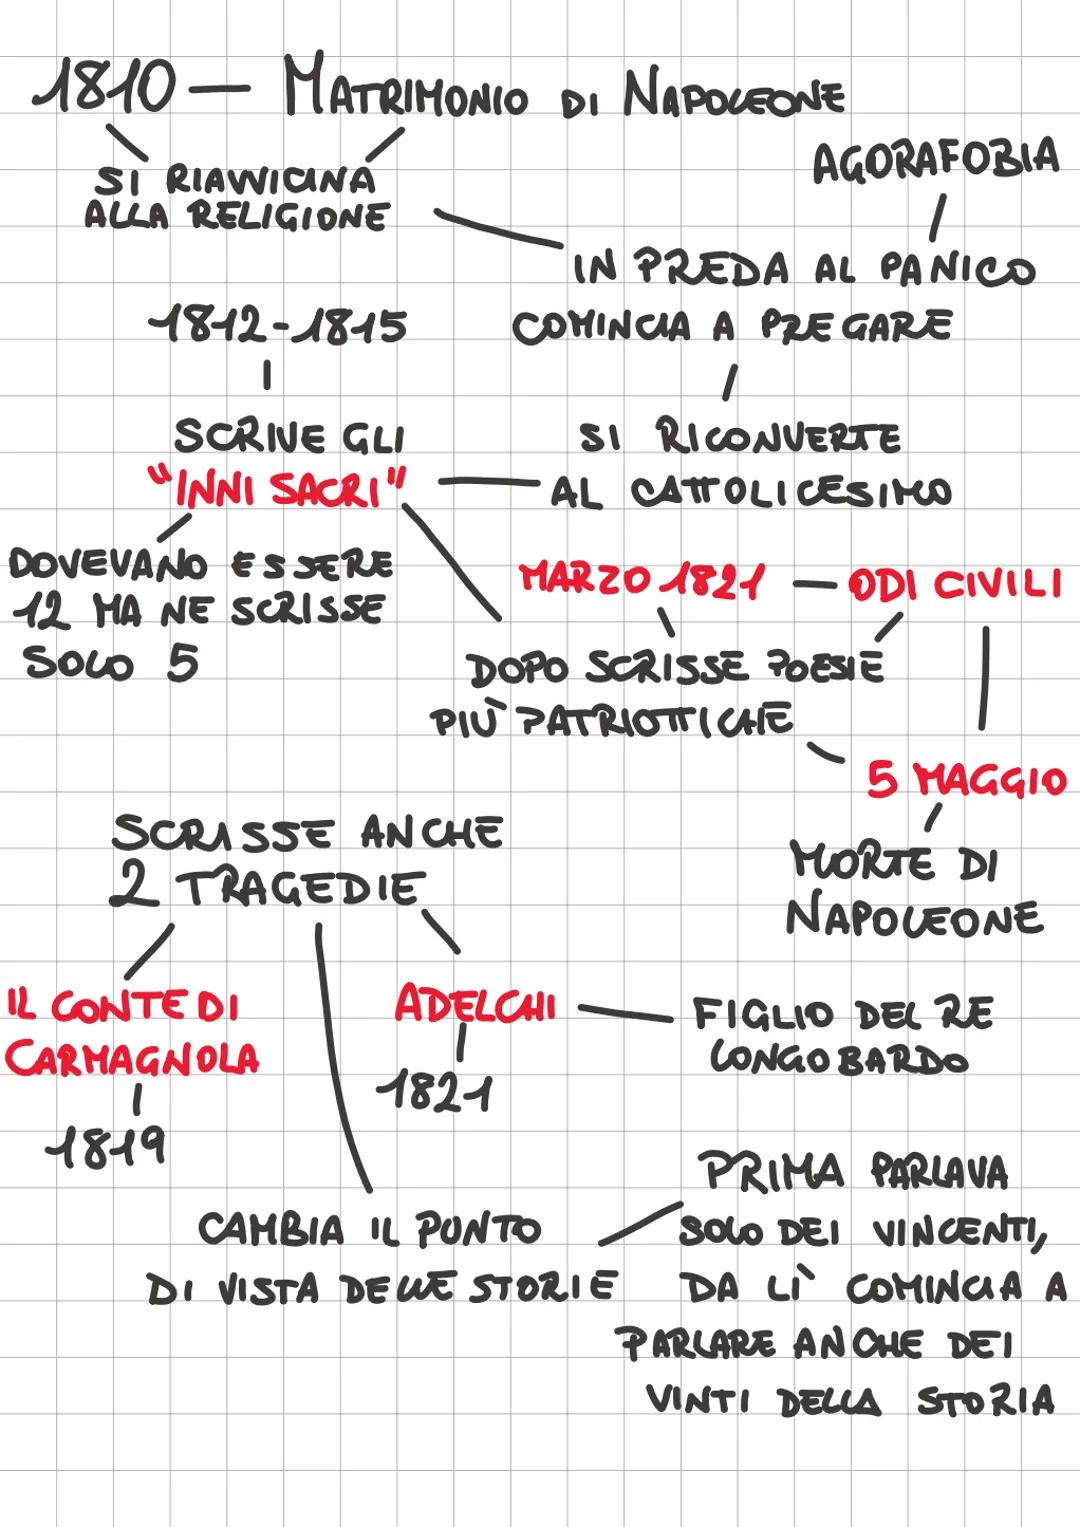 1810 — MATRIMONIO DI NAPOLEONE
AGORAFOBIA
SI RIAVVICINA
ALLA RELIGIONE
IN PREDA AL PANICO
COMINCIA A PREGARE
1812-1815
SCRIVE GLI
"INNI SACRI"
SI RICONVERTE
AL CATTOLICESIMO
DOVEVANO ESSERE
12 MA NE SCRISSE
SOLO 5
MARZO 1821 — ODI CIVILI
DOPO SCRISSE POESIE
PIÙ PATRIOTTICHE
5 MAGGIO
MORTE DI
NAPOLEONE
SCRISSE ANCHE
2 TRAGEDIE
IL CONTE DI
CARMAGNOLA
1819
ADELCHI
1821
FIGLIO DEL RE
LONGOBARDO
CAMBIA IL PUNTO
DI VISTA DELLE STORIE
PRIMA PARLAVA
SOLO DEI VINCENTI,
DA LÌ COMINCIA A
PARLARE ANCHE DEI
VINTI DELLA STORIA